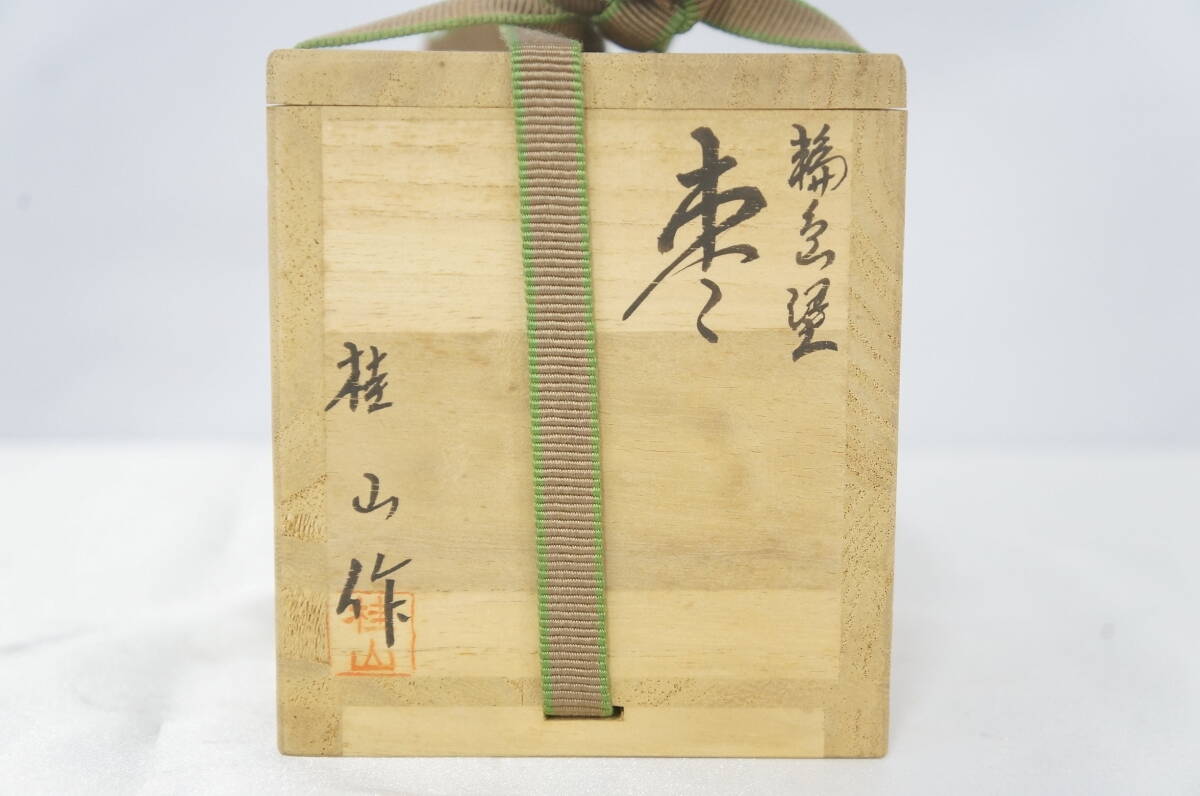 輪島塗
棗
桂山作
桂山